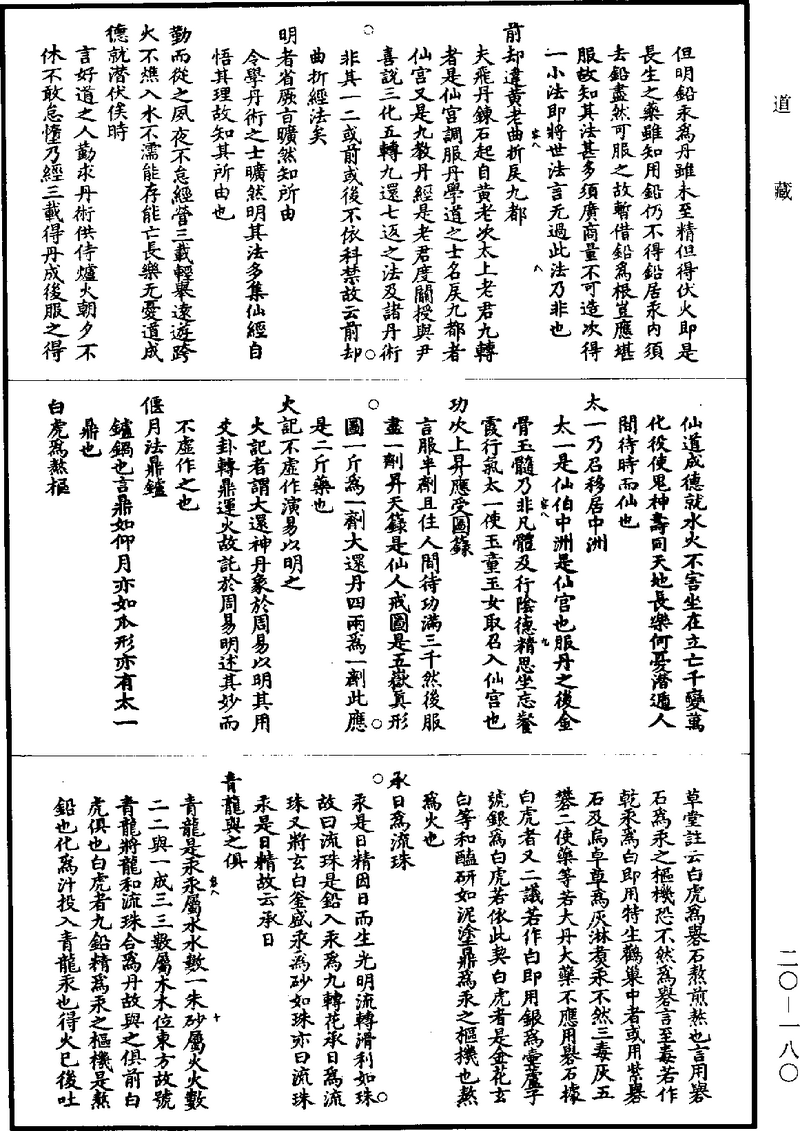 道藏
但明鉛汞爲丹雖未至精但得伏火即是
長生之藥雖知用鉛仍不得鉛居汞內須
去鉛盡然可服之故暫借鉛爲根豈應堪
服故知其法甚多須廣商量不可造次得
一小法即將世法言无過此法乃非也
前却違黃老曲折戾九都
夫飛丹鍊石起自黃老次太上老君九轉
者是仙宮調服丹學道之士名戾九都者
仙宮又是九教丹經是老君度關授與尹
喜說三化五轉九還七返之法及諸丹術
非其一二或前或後不依科禁故云前却
曲折經法矣
明者省厥旨曠然知所由
令學丹術之士曠然明其法多集仙經自
悟其理故知其所由也
勤而從之夙夜不怠經營三載輕舉遠遊跨
火不燋入水不濡能存能亡長樂无憂道成
德就潛伏俟時
言好道之人勤求丹術供侍爐火朝夕不
休不敢怠惰乃經三載得丹成後服之得
仙道成德就水火不害坐在立亡千變萬
化役使鬼神壽同天地長樂何憂潛遁人
間待時而仙也
太一乃召移居中洲
太一是仙伯中洲是仙宮也服丹之後金
骨玉髓乃非凡體及行陰德精思坐忘餐
霞行氣太一使玉童玉女取召入仙宮也
功次上昇應受圖籙
言服半劑且住人間待功滿三千然後服
盡一劑昇天籙是仙人戒圖是五嶽真形
圖一斤爲一劑大還丹四兩爲一劑此應
是二斤藥也
火記不虛作演易以明之
火記者謂大還神丹象於周易以明其用
爻卦轉鼎運火故託於周易明述其妙而
不虛作之也
偃月法鼎鑪
鑪鍋也言鼎如仰月亦如本形亦有太一
鼎也
白虎爲熬樞
草堂註云白虎爲礜石熬煎熬也言用礜
石爲汞之樞機恐不然爲礜言至毒若作
乾汞爲白即用特生鸛巢中者或用紫礜
石及烏草草爲灰淋煮汞不然三毒灰五
礬二使藥等若大丹大藥不應用礜石據
白虎者又二議若作白即用銀爲壺盧子
號銀爲白虎若依此契白虎者是金花玄
白等和醯研如泥塗鼎爲汞之樞機也熬
爲火也
汞日爲流珠
汞是日精因日而生光明流轉滑利如珠
故曰流珠是鉛入汞爲九轉花承日爲流
珠又將玄白釜盛汞爲砂如珠亦曰流珠
汞是日精故云承日
青龍與之俱
青龍是汞汞屬水水數一朱砂屬火火數
二二與一成三三數屬木木位東方故號
青龍將龍和流珠合爲丹故與之俱前白
虎俱也白虎者九鉛精爲汞之樞機是熬
鉛也化爲汁投入青龍汞也得火已後吐
二〇—一八〇